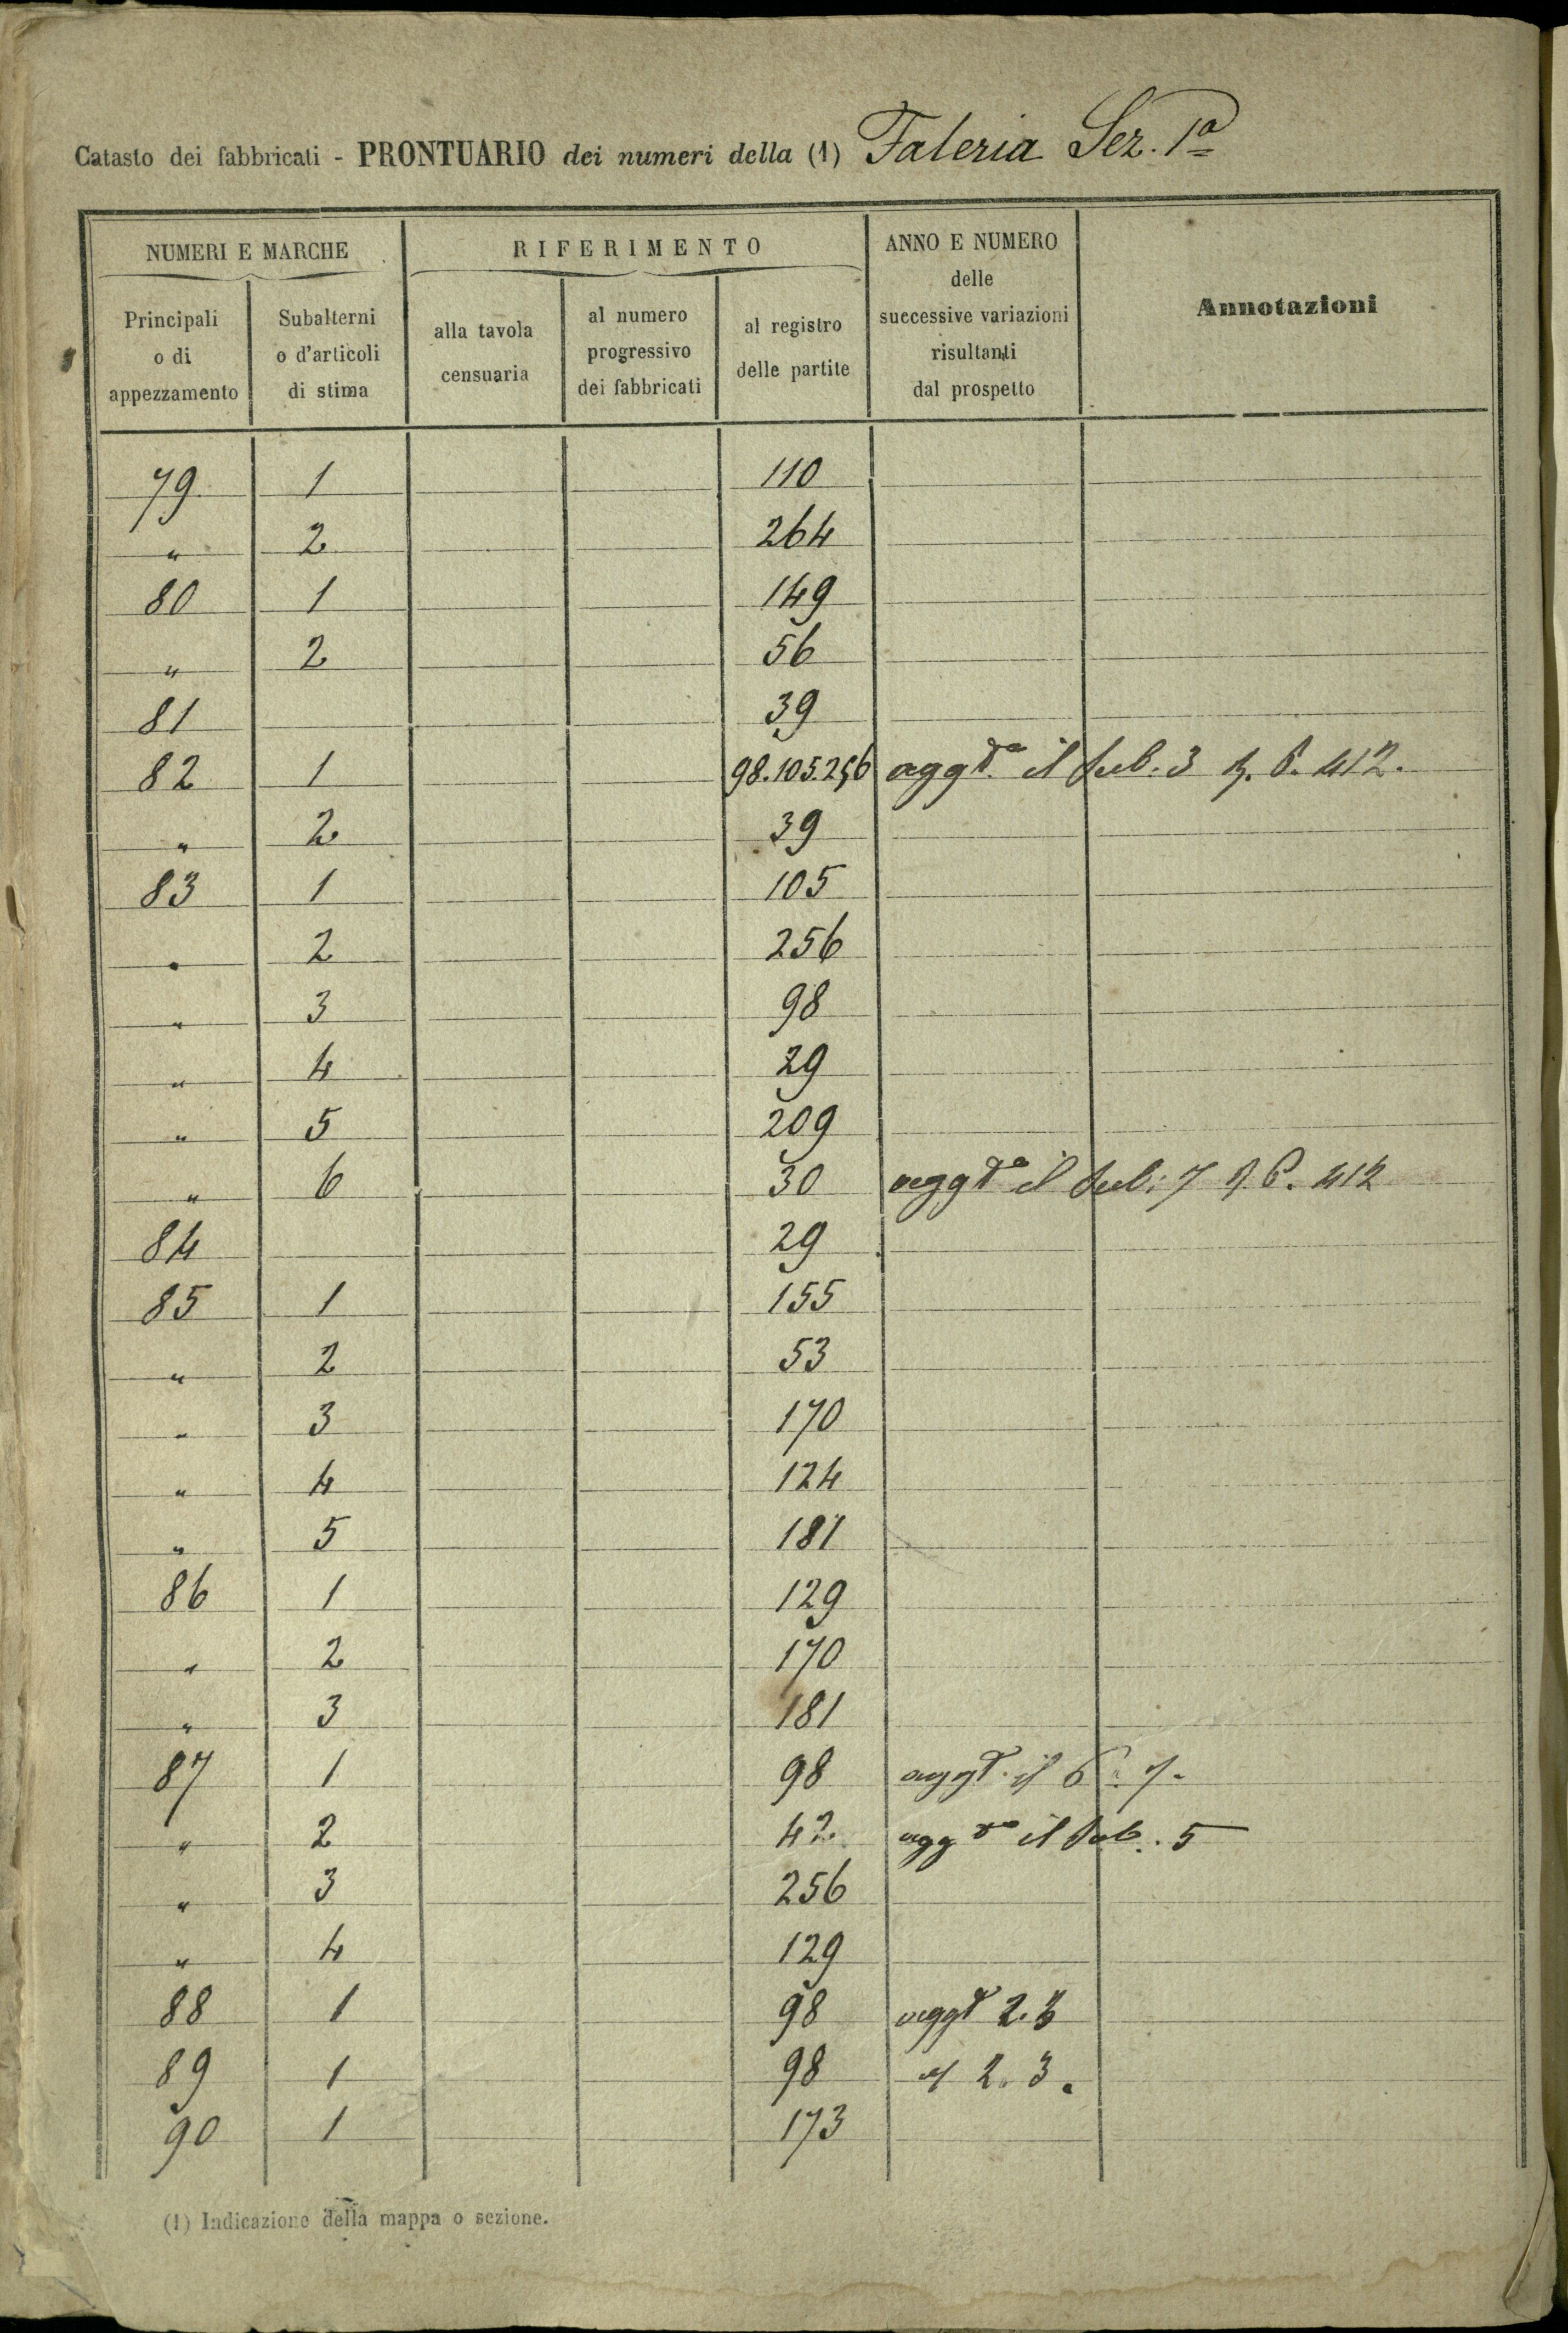 Catasto dei fabbricati - PRONTUARIO dei numeri della (1) Faleria Sez. 1a
NUMERI E MARCHE
RIFERIMENTO
ANNO E NUMERO
delle
successive variazioni
risultanti
dal prospetto
Annotazioni
Principali
o di
appezzamento
Subalterni
o d'articoli
di stima
alla tavola
censuaria
al numero
progressivo
dei fabbricati
al registro
delle partite
79 1 110
" 2 264
80 1 149
" 2 56
81 39
82 1 98.105.256 aggta il sub. 3 412.
" 2 39
83 1 105
" 2 256
" 3 98
" 4 29
" 5 209
" 6 30 aggto il sub: 7 412
84 29
85 1 155
" 2 53
" 3 170
" 4 124
" 5 181
86 1 129
" 2 170
" 3 181
87 1 98 aggt. il 6 7.
" 2 42 aggto il sub. 5
" 3 256
" 4 129
88 1 98 aggt 2. 3
89 1 98 2. 3.
90 1 173
(1) Indicazione della mappa o sezione.